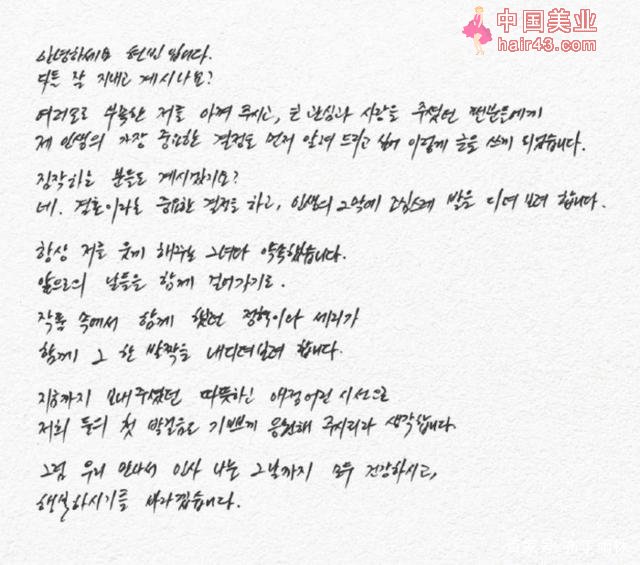 中国美业
hair43.com
안녕하세요 현빈입니다.
다들 잘 지내고 계시나요?
여러모로 부족한 저를 아껴 주시고, 큰 관심과 사랑을 주셨던 팬분들에게
제 인생의 가장 중요한 결정을 먼저 알려 드리고 싶어 이렇게 글을 쓰게 되었습니다.
짐작하올 분들도 계시겠지요?
네. 결혼이라는 중요한 결정을 하고, 인생의 2막에 조심스레 발을 디뎌 보려 합니다.
항상 저를 웃게 해주는 그녀와 약속했습니다.
앞으로의 날들을 함께 걸어가기로.
작품 속에서 함께 했던 정혁이와 세리가
함께 그 한 발짝을 내디뎌보려 합니다.
지금까지 보내주셨던 따뜻하신 애정어린 시선으로
저희 둘의 첫 발걸음도 기쁘게 응원해 주시리라 생각합니다.
그럼 우리 만나서 인사 나눌 그날까지 모두 건강하시고,
행복하시기를 바라겠습니다.